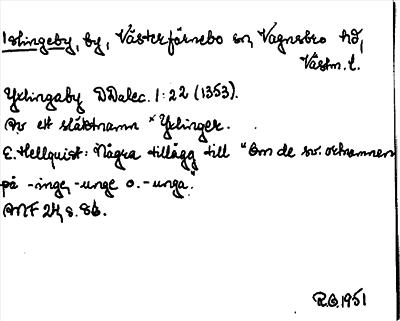 Islingeby, by, Västerfärnebo sn, Vagnsbro hd,
Västm. l.
Yslingaby DDalec. 1:22 (1353).
Av ett släktnamn *Yslingar.
E. Hellquist: Några tillägg till "Om de sv. ortnamnen
på -inge, -unge o. -unga."
ANF 24, s. 86.
R.O. 1951